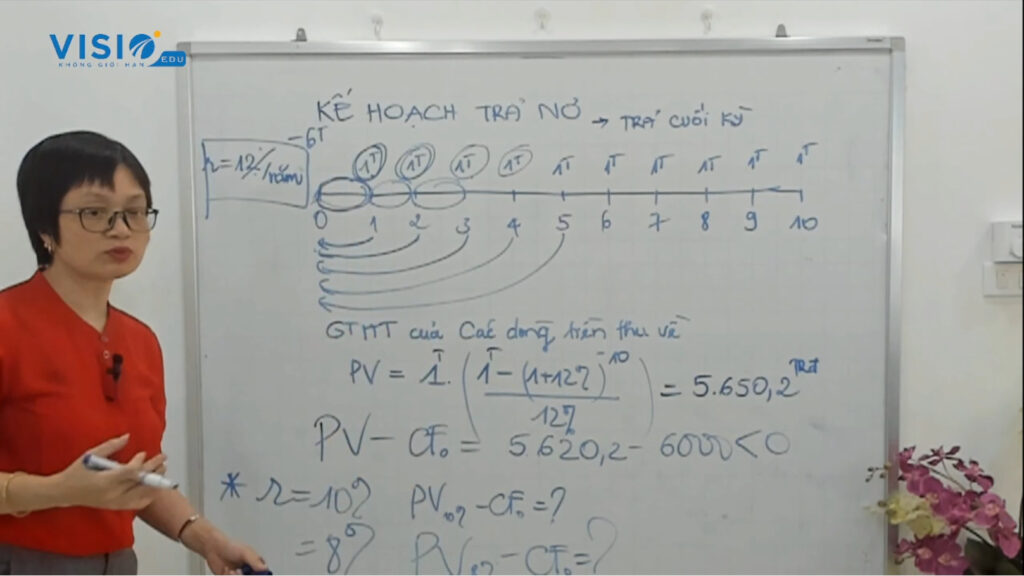 VISIO
EDU
KHÔNG GIỚI HẠN
KẾ HOẠCH TRẢ NỢ → TRẢ CUỐI KỲ
-6T
r=12%/năm
1T 1T 1T 1T 1T 1T 1T 1T 1T 1T
0 1 2 3 4 5 6 7 8 9 10
GTHT của Các dòng tiền thu về
PV = 1T. (1T-(1+12%)^-10 / 12%) = 5.650,2 Trđ
PV - CF₀ = 5.620,2 - 6000 < 0
* r=10% PV₁₀% - CF₀ = ?
= 8% PV₈% - CF₀ = ?